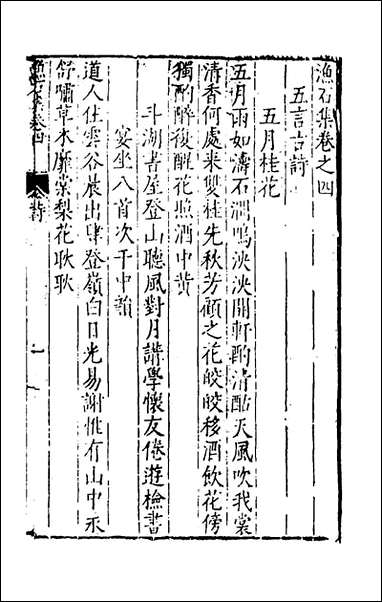 漁石集卷之四
五言古詩
五月桂花
五月雨如濤石澗鳴泱泱開軒酌清酤天風吹我裳
清香何處来雙桂先秋芳顧之花皎皎移酒飲花傍
獨酌醉復醒花照酒中黃
斗湖書屋登山聽風對月講學懷友倦遊檢書
宴坐八首次于中韻
道人住雲谷晨出肆登嶺白日光易謝惟有山中永
舒嘯草木靡棠梨花耿耿
漁石集卷四
一